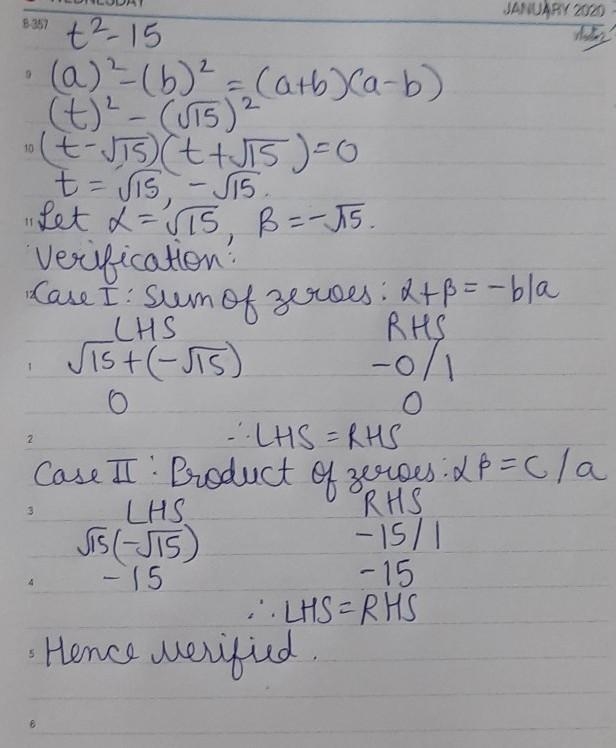 JANUARY 2020
8-357 t² - 15
9 (a)² - (b)² = (a+b)(a-b)
(t)² - (√15)²
10 (t-√15)(t+√15)=0
t = √15, -√15.
11 Let α = √15, β = -√15.
Verification:
12 Case I: Sum of zeroes: α+β = -b/a
LHS RHS
1 √15+(-√15) -0/1
0 0
2 ∴ LHS = RHS
Case II: Product of zeroes: αβ = C/a
3 LHS RHS
√15(-√15) -15/1
4 -15 -15
∴ LHS = RHS
5 Hence verified.
6